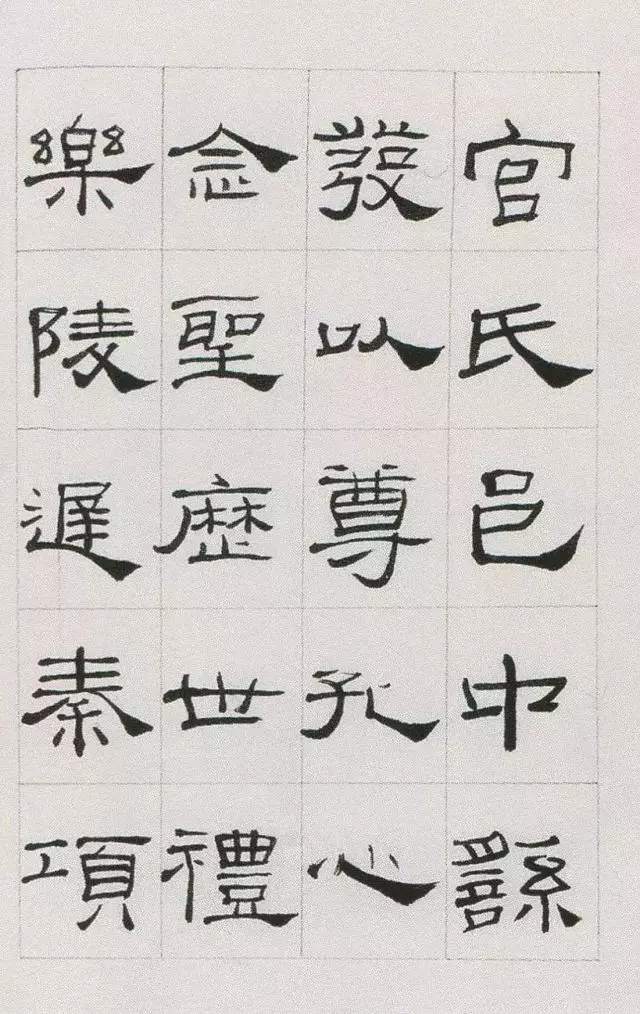 官氏邑中繇
發以尊孔心
念聖歷世禮
樂陵遲秦項